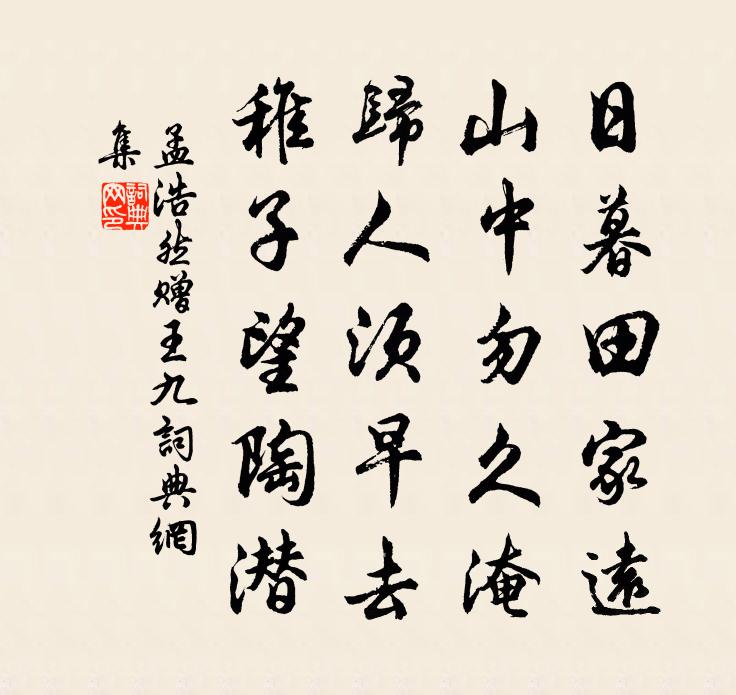 日暮田家遠
山中勿久淹
歸人須早去
稚子望陶潜
孟浩然赠王九詞典網
集
詞典網印